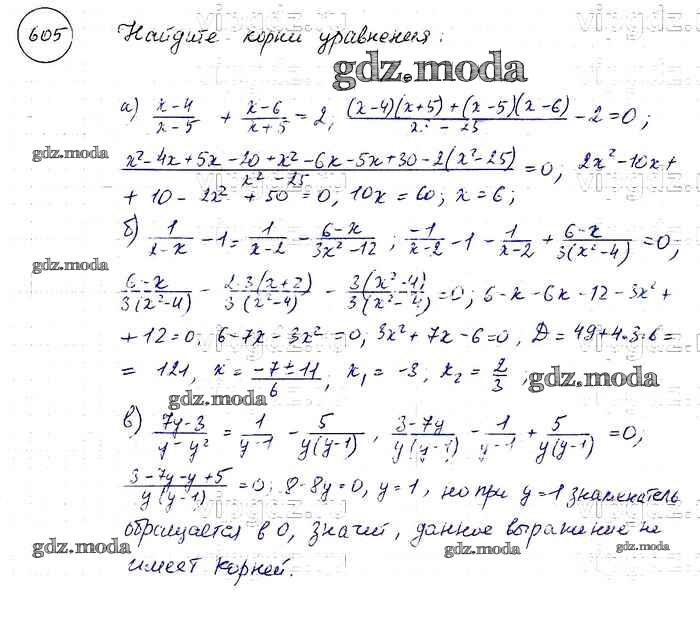 605 Найдите корни уравнения:
gdz.moda
а) (x-4)/(x-5) + (x-6)/(x+5) = 2, ((x-4)(x+5) + (x-5)(x-6))/(x² - 25) - 2 = 0;
gdz.moda
(x² - 4x + 5x - 20 + x² - 6x - 5x + 30 - 2(x² - 25))/(x² - 25) = 0; 2x² - 10x +
+ 10 - 2x² + 50 = 0, 10x = 60; x = 6;
б) 1/(2-x) - 1 = 1/(x-2) - (6-x)/(3x²-12); -1/(x-2) - 1 - 1/(x-2) + (6-x)/(3(x²-4)) = 0;
gdz.moda
(6-x)/(3(x²-4)) - (2·3(x+2))/(3(x²-4)) - (3(x²-4))/(3(x²-4)) = 0; 6-x-6x-12-3x² +
+ 12 = 0, 6-7x-3x² = 0, 3x² + 7x - 6 = 0, D = 49+4·3·6 =
= 121, x = (-7±11)/6, x₁ = -3, x₂ = 2/3,
gdz.moda
gdz.moda
в) (7y-3)/(y-y²) = 1/(y-1) - 5/(y(y-1)), (3-7y)/(y(y-1)) - 1/(y-1) + 5/(y(y-1)) = 0,
(3-7y-y+5)/(y(y-1)) = 0; 8-8y=0, y=1, но при y=1 знаменатель
обращается в 0, значит, данное выражение не
gdz.moda gdz.moda gdz.moda
имеет корней.